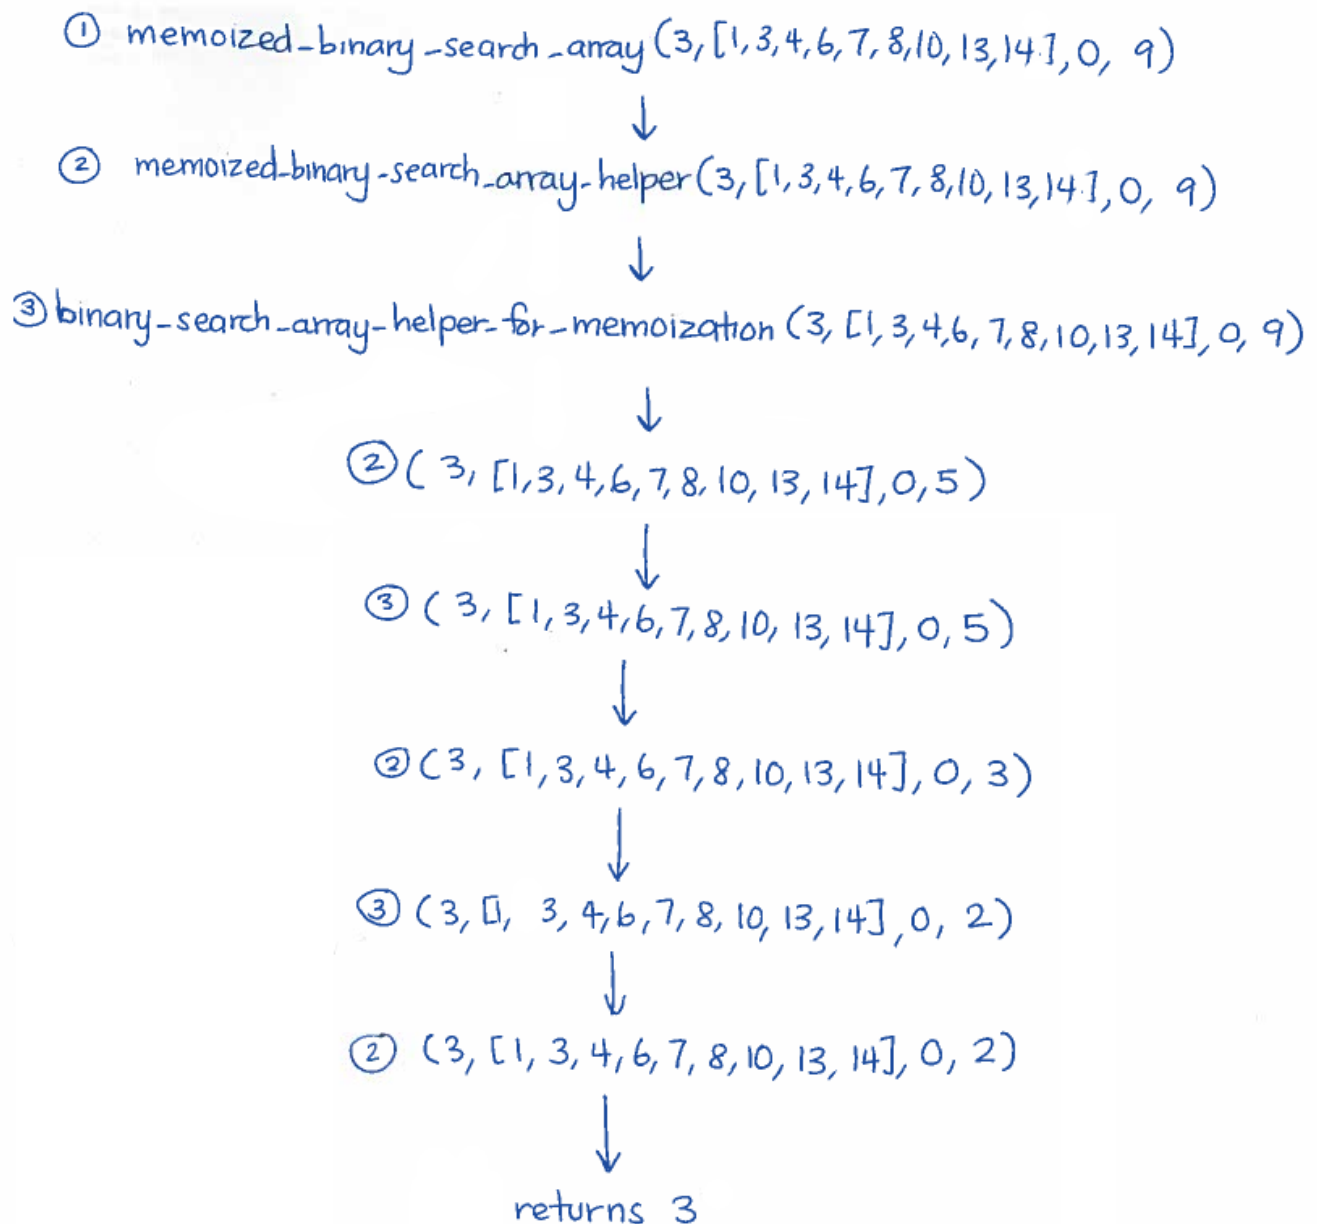 ① memoized_binary_search_array(3, [1,3,4,6,7,8,10,13,14], 0, 9)
↓
② memoized_binary_search_array_helper(3, [1,3,4,6,7,8,10,13,14], 0, 9)
↓
③ binary_search_array_helper_for_memoization (3, [1,3,4,6,7,8,10,13,14], 0, 9)
↓
② (3, [1,3,4,6,7,8,10,13,14],0,5)
↓
③ (3, [1,3,4,6,7,8,10,13,14],0,5)
↓
② (3, [1,3,4,6,7,8,10,13,14], 0, 3)
↓
③ (3, [1, 3,4,6,7,8,10,13,14],0, 2)
↓
② (3, [1, 3,4,6,7,8,10,13,14], 0, 2)
↓
returns 3